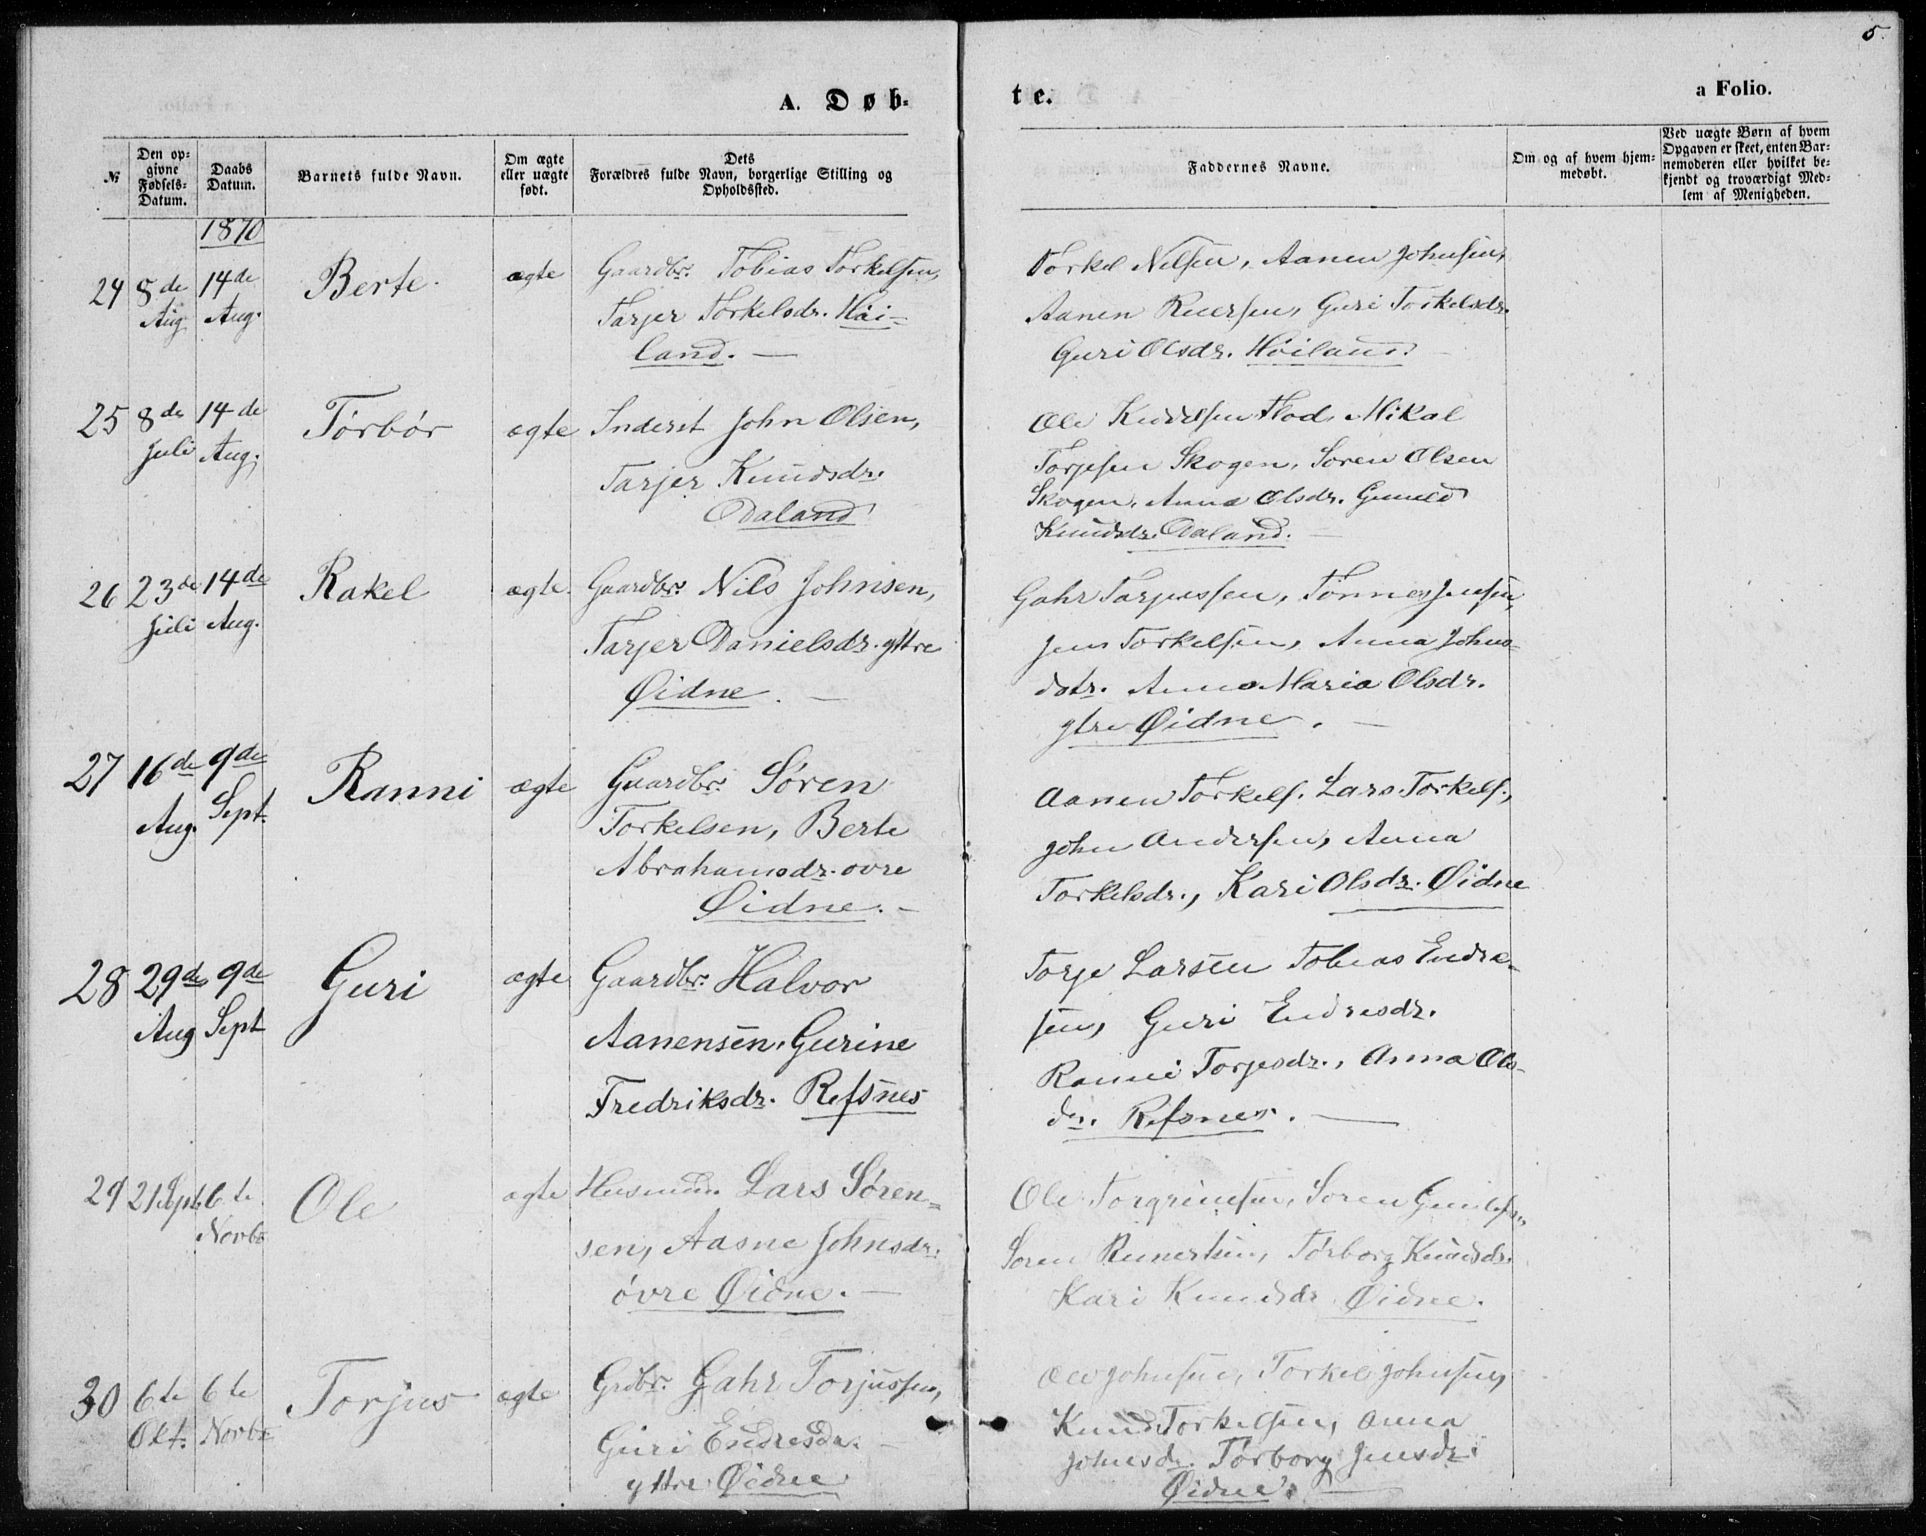 5.
A. Døb-
te.
a Folio.
№
Den op-
givne
Fødsels-
Datum.
Daabs
Datum.
Barnets fulde Navn.
Om ægte
eller uægte
født.
Dets
Forældres fulde Navn, borgerlige Stilling og
Opholdssted.
Faddernes Navne.
Om og af hvem hjem-
medøbt.
Ved uægte Børn af hvem
Opgaven er skeet, enten Bar-
nemoderen eller hvilket be-
kjendt og troværdigt Med-
lem af Menigheden.
1870
24 8de Aug. 14de Aug. Berte. ægte
Gaardbr. Tobias Torkelsen,
Tarjer Torkelsdr. Høi-
land. —
Torkel Nilsen, Aanen Johnsen,
Aanen Reiersen, Guri Torkelsdr.
Guri Olsdr. Høiland.
25 8de Juli 14de Aug. Tørbør ægte
Inderst John Olsen,
Tarjer Knudsdr.
Daland
Ole Knudsen Flod, Mikal
Torjesen Skogen, Søren Olsen
Skogen, Anna Olsdr. Gunild
Knudsdr. Daland. —
26 23de Juli 14de Aug. Rakel ægte.
Gaardbr. Nils Johnsen,
Tarjer Danielsdr. yttre
Øidne. —
Gahr Tarjussen, Tønnes Jensen,
Jens Torkelsen, Anna Johns-
dotr. Anna Maria Olsdr.
ytre Øidne. —
27 16de Aug. 9de Sept. Ranni ægte
Gaardbr. Søren
Torkelsen, Berte
Abrahamsdr. ovre
Øidne. —
Aanen Torkels. Lars Torkels.,
John Andersen, Anna
Torkelsdr., Kari Olsdr. Øidne
28 29de Aug 9de Sept Guri ægte
Gaardbr. Halvor
Aanensen, Gurine
Fredriksdr. Refsnes
Torje Larsen Tobias Endre-
sen, Guri Endresdr.
Ranni Torjesdr., Anna Ols-
dr. Refsnes. —
29 21 Sept. 6te Novbr Ole ægte
Husmand Lars Søren-
sen, Aasne Johnsdr.
øvre Øidne. —
Ole Torgrimsen, Søren
Søren Reinertsen, Tørborg Knudsdr.
Kari Knudsdr Øidne.
30 6te Okt. 6te Novbr Torjus ægte
Grdbr. Gahr Torjussen,
Guri Endresdr. —
yttre Øidne
Ole Johnsen, Torkel Johnsen,
Knud Torkelsen, Anna
Johnsdr. Tørborg Jensdr.
Øidne. —